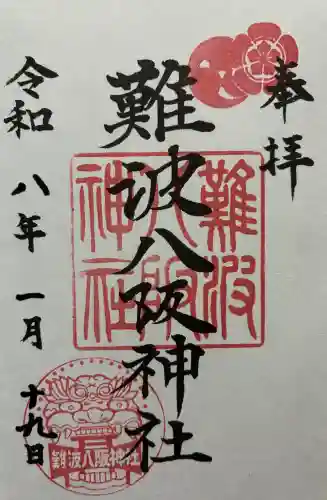 奉拝
難波八阪神社
令和八年一月十九日
難波八阪神社
難波八阪神社